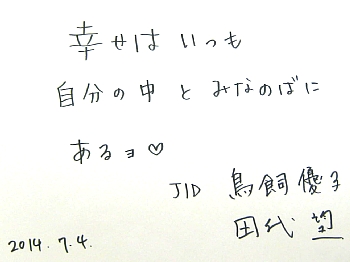 幸せは いっも
自分の中と みなのばに
あるヨ♡
JID 鳥飼優子
田代 望
2014.7.4.